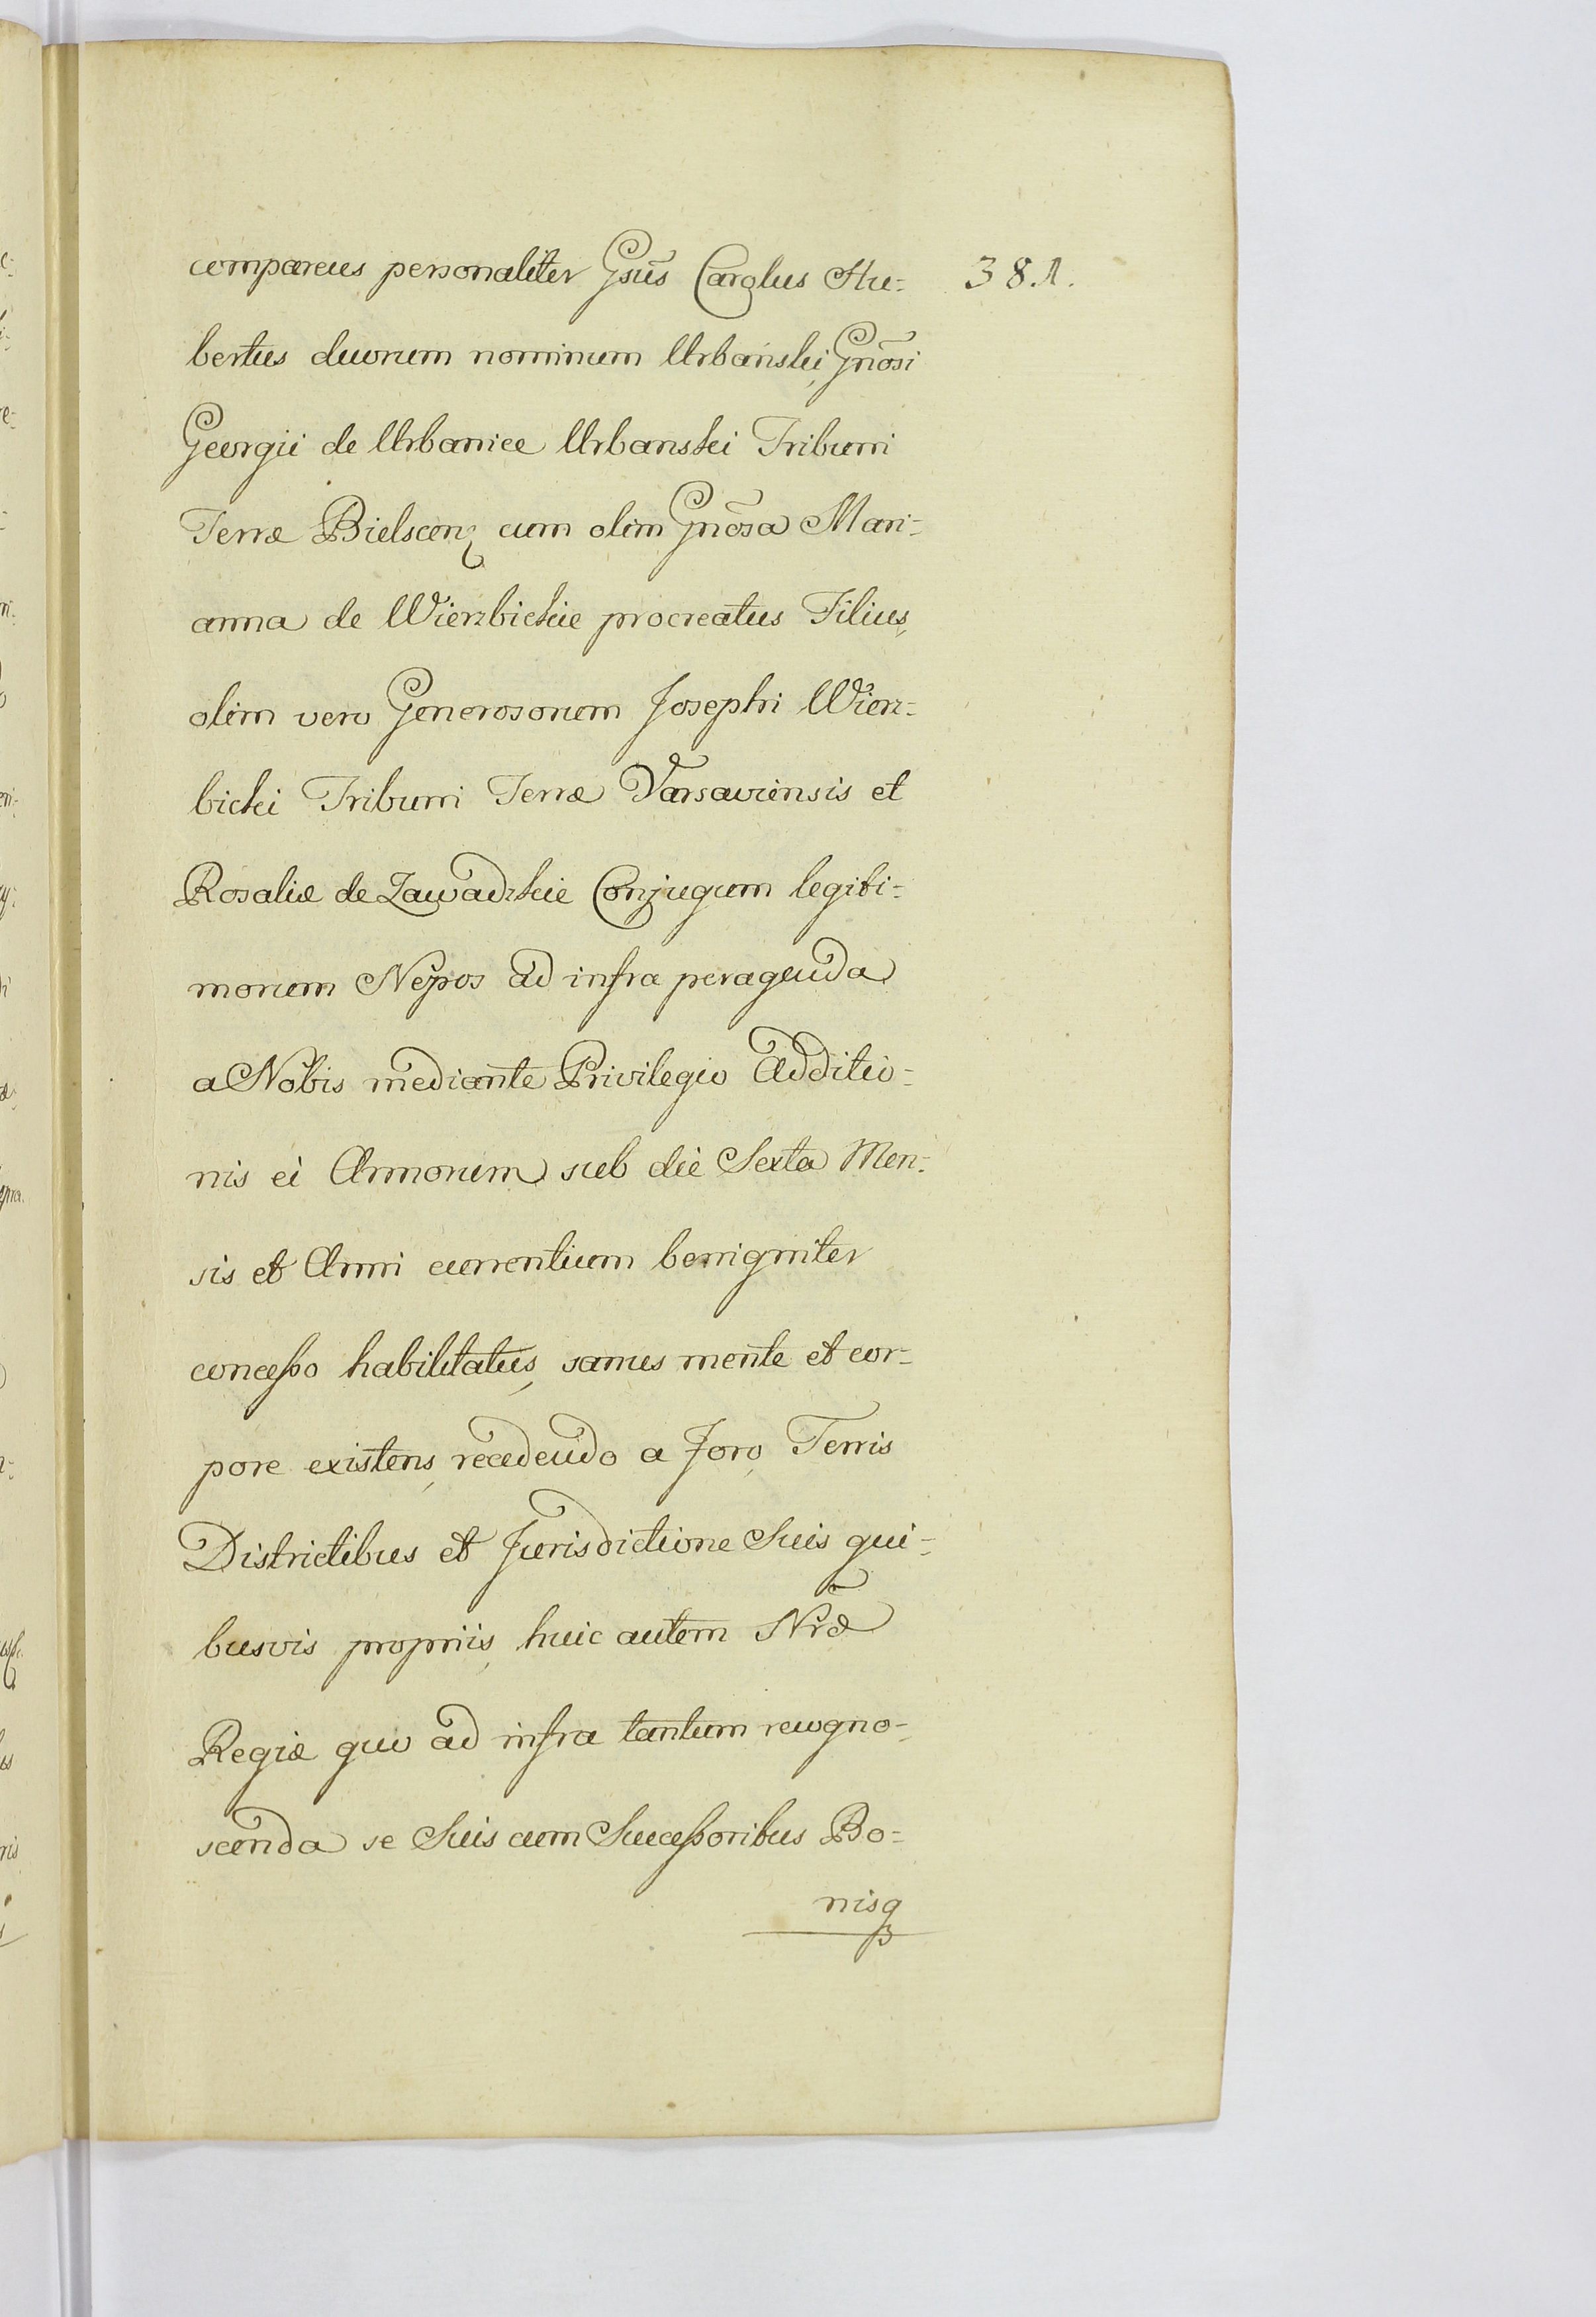 comparens personaliter Gsus Carolus Hu= 381.
bertus duorum nominum Urbański, Gnosi
Georgii de Urbanice Urbanski Tribuni
Terræ Bielscen cum olim Gnosa Mari=
anna de Wierzbickie procreatus Filius,
olim vero Generosorum Josephi Wierz=
bicki Tribuni Terræ Varsaviensis et
Rosaliæ de Zawadzkie Conjugum legiti=
morum Nepos ad infra peragenda
a Nobis mediante Privilegio Additio=
nis ei Annorum sub die Sexta Men=
sis et Anni currentium benigniter
concesso habilitatus, sanus mente et cor=
pore existens, recedendo a Foro, Terris
Districtibus et Jurisdictione Suis qui=
busvis propriis, huic autem Nræ
Regiæ quo ad infra tantum recogno=
scenda se Suis cum Successoribus Bo=
nisq